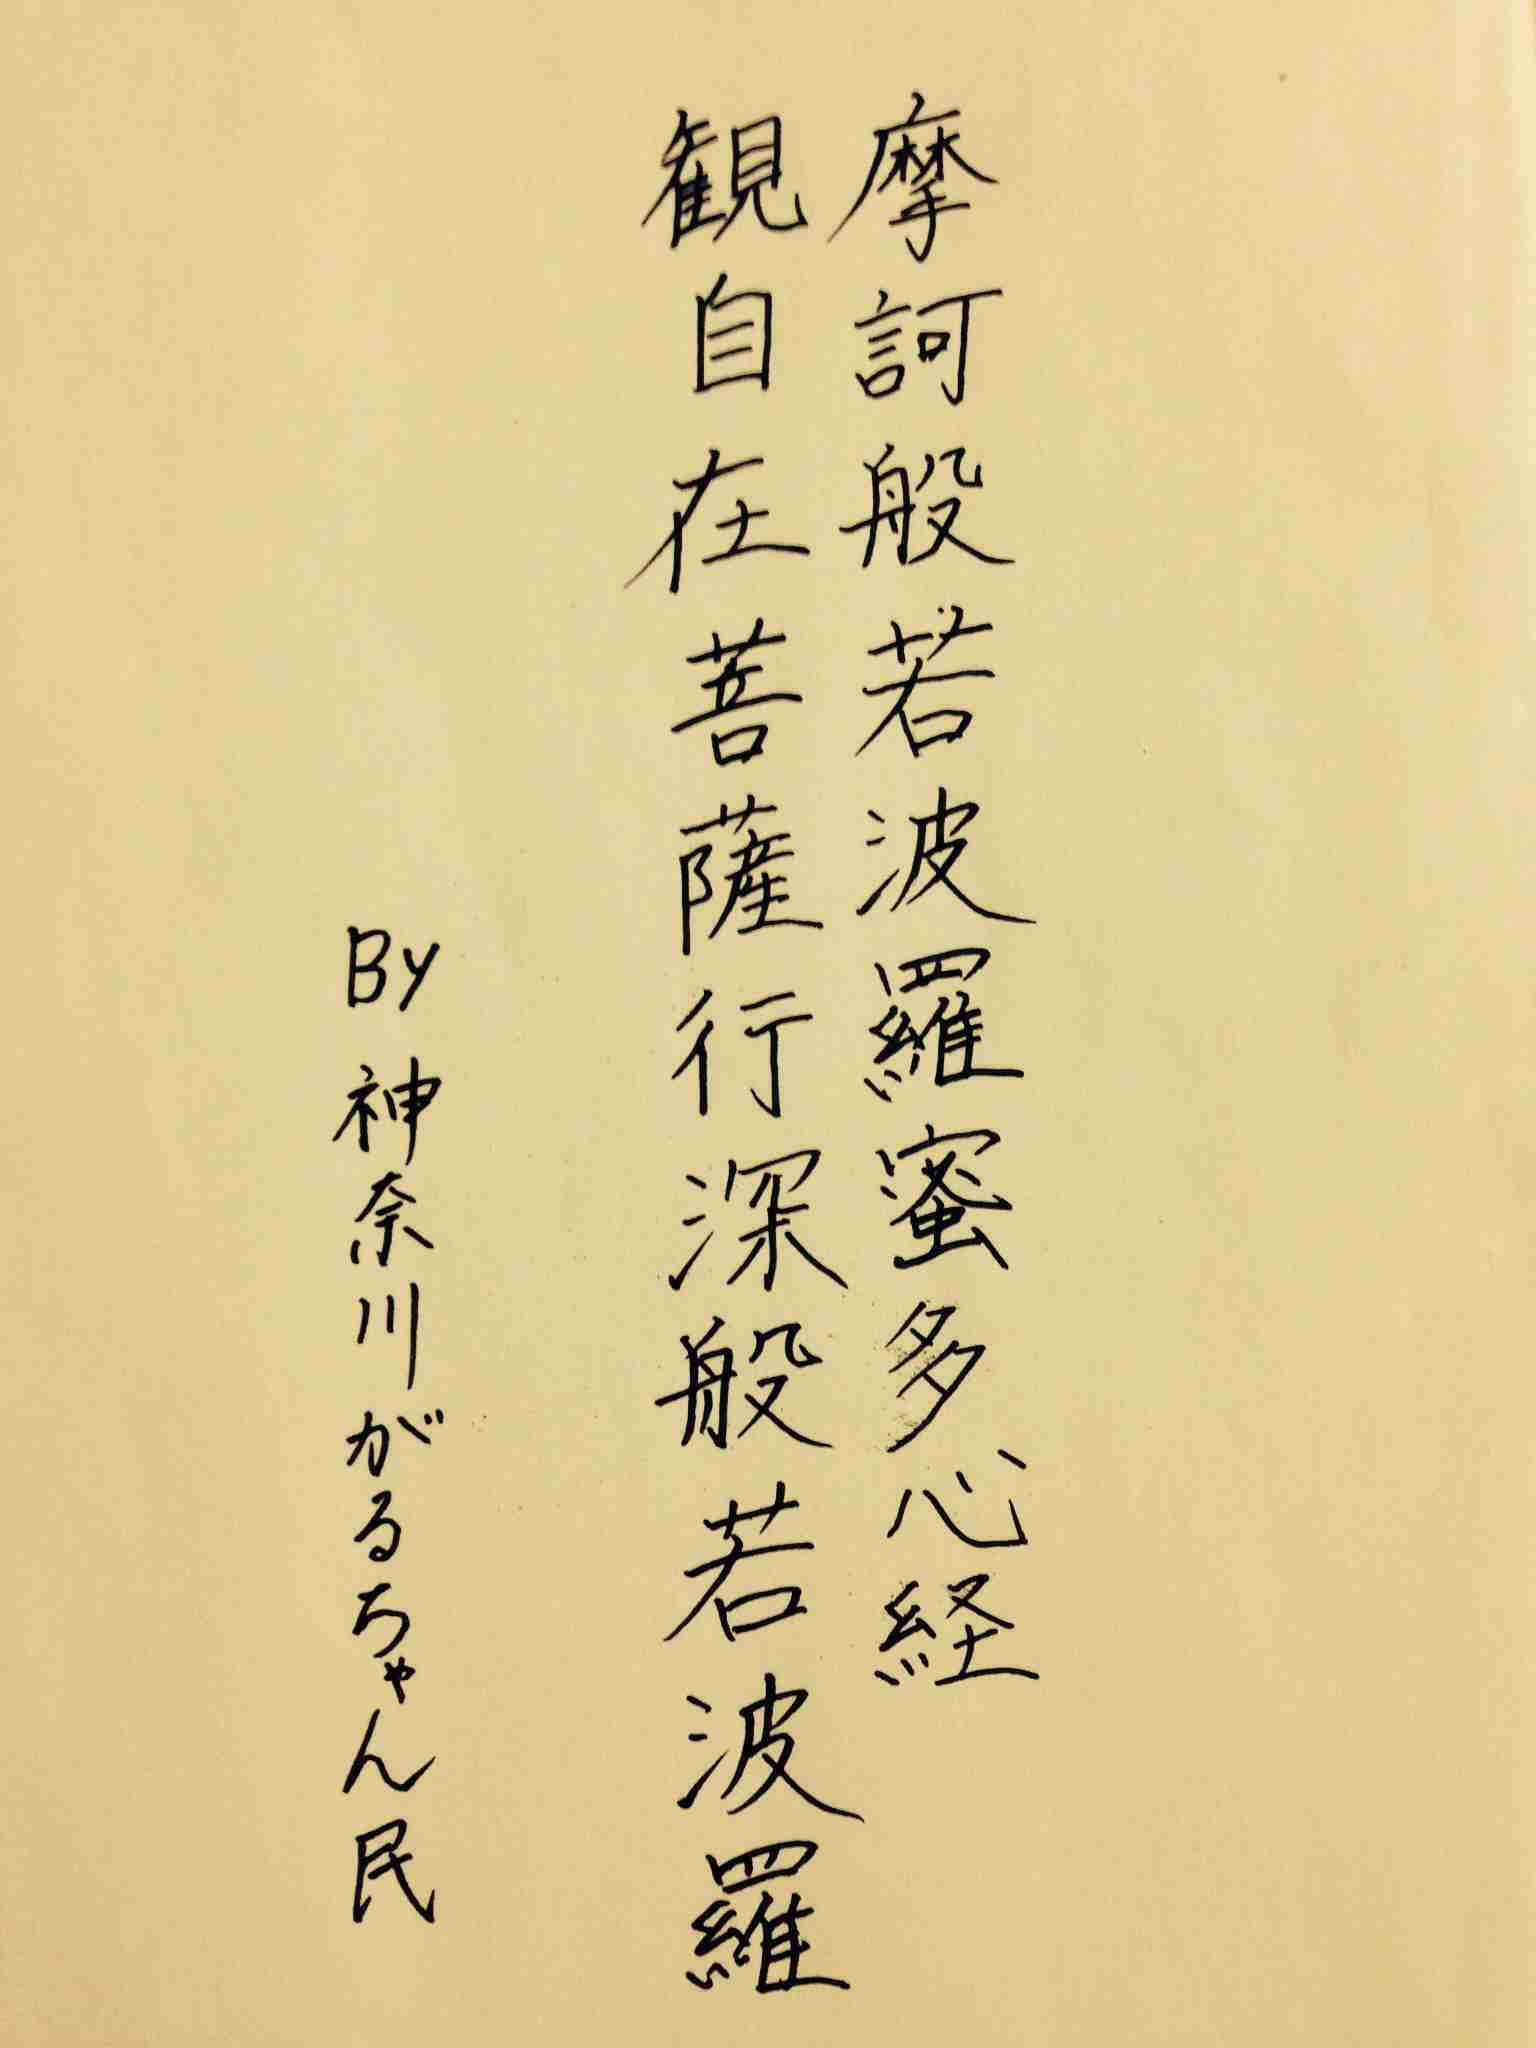 摩訶般若波羅蜜多心経
観自在菩薩行深般若波羅
By 神奈川がるちゃん民